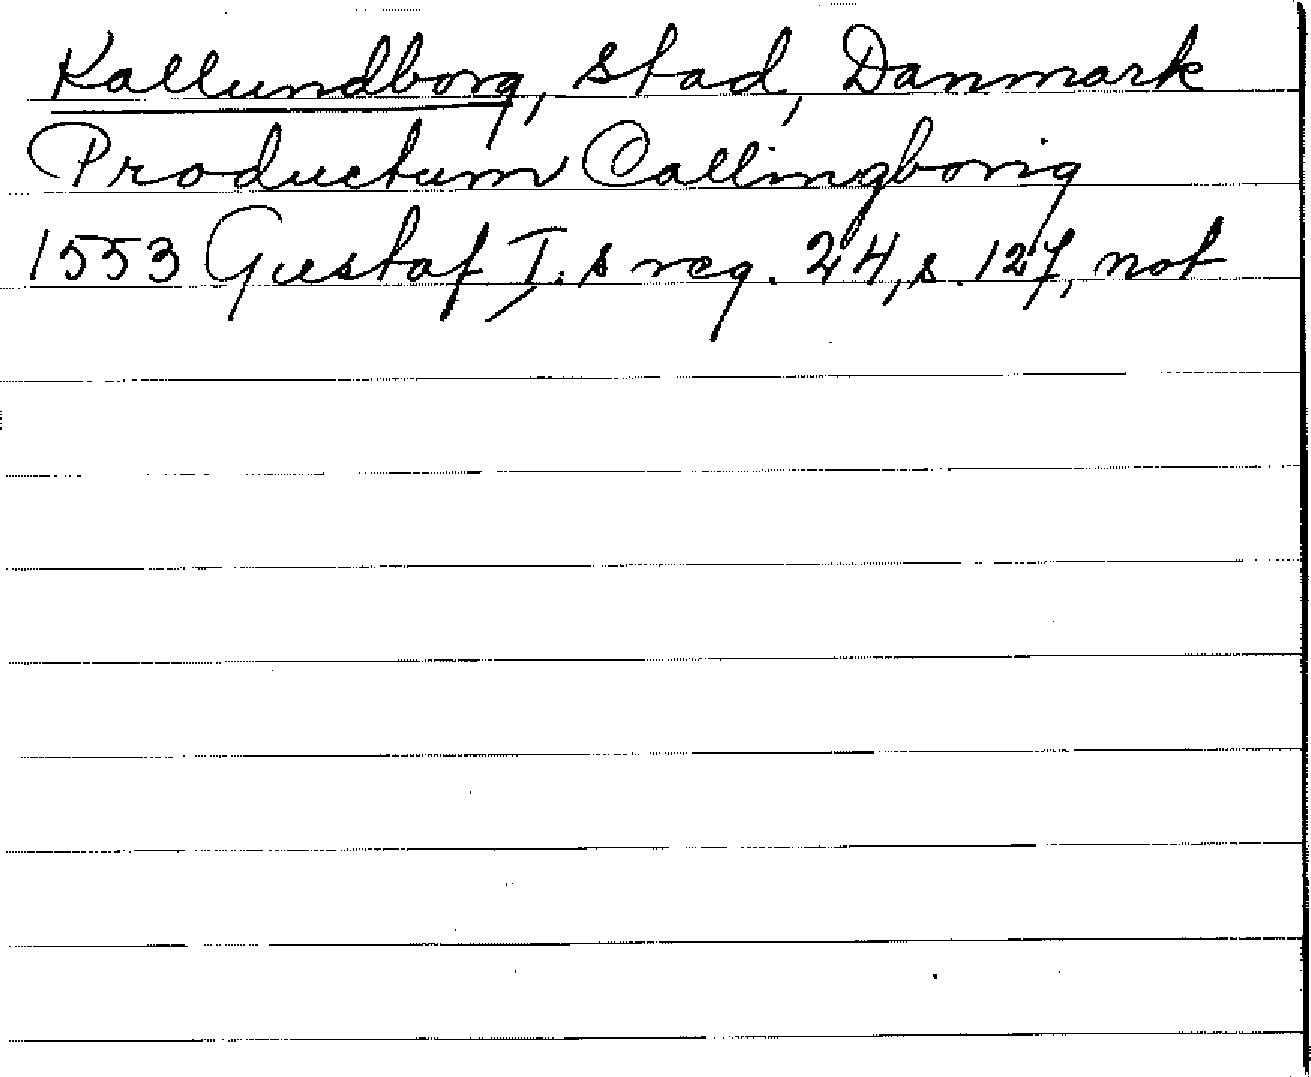 Kallundborg, stad, Danmark
Productum Callingborig
1553 Gustaf I.s reg. 24, s. 127, not